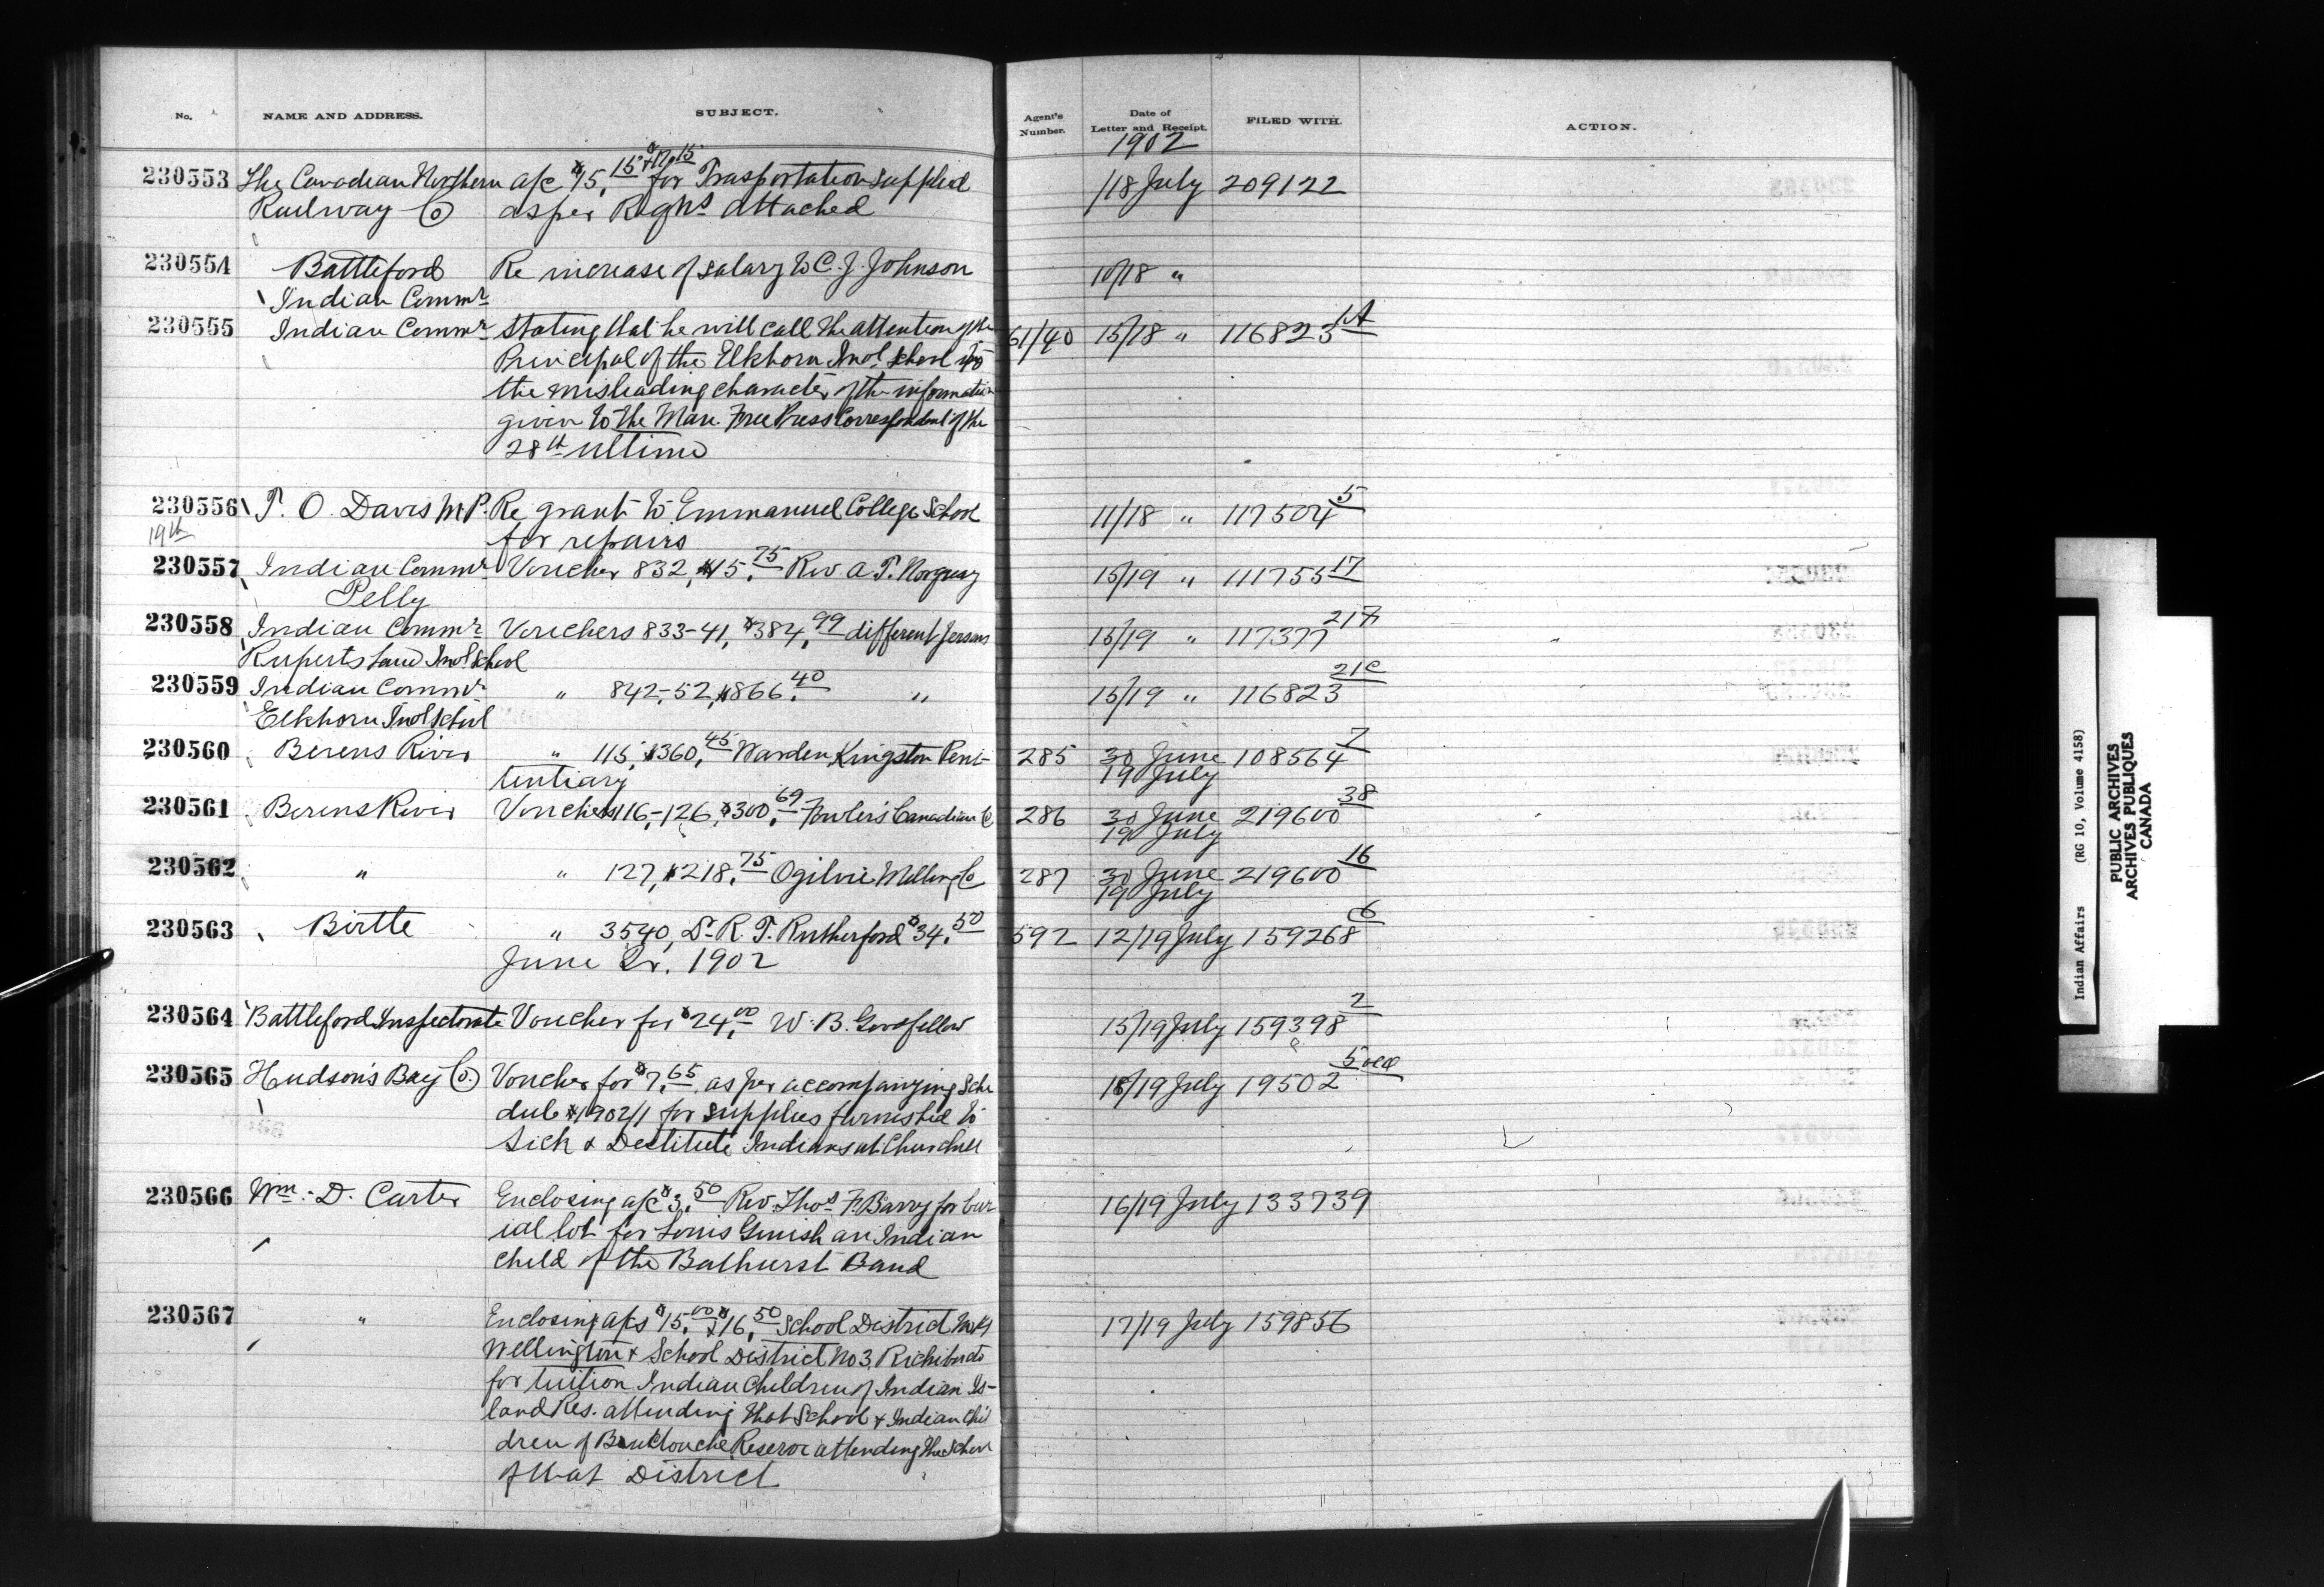 No.
NAME AND ADDRESS.
SUBJECT.
Agent's Number.
Date of Letter and Receipt.
FILED WITH.
ACTION.
1902
230553 The Canadian Northern a/c $75.15 + for Trasportation supplied /18 July 209122
Railway Co as per Reqns attached
230554 Battleford Re increase of salary to C. J. Johnson 10/18 "
Indian Commr
230555 Indian Commr Stating that he will call the attention of the 61/40 15/18 " 116823 1A
Principal of the Elkhorn Indl School to
the misleading character of the information
given to the Man. Free Press Correspondent of the
28th ultimo
230556 T. O. Davis M.P. Re grant to Emmanuel College School 11/18 " 117504 5
19th for repairs
230557 Indian Commr Voucher 832, $15.75 Rev. A. T. Norquay 15/19 " 111755 17
Pelly
230558 Indian Commr Vouchers 833-41, $384.99 different persons 15/19 " 117377 217
Ruperts Land Indl School
230559 Indian Commr " 842-52, $866.40 " 15/19 " 116823 21C
Elkhorn Indl School
230560 Berens River " 115, $360.45 Warden, Kingston Peni- 285 30 June 108564 7
tentiary 19 July
230561 Berens River Vouchers 116-126, $300.69 Fowler's Canadian Co 286 30 June 219600 38
19 July
230562 " " 127, $218.75 Ogilvie Milling Co 287 30 June 219600 16
19 July
230563 Birtle " 3540, Dr. R. T. Rutherford $34.50 592 12/19 July 159268 6
June Qr. 1902
230564 Battleford Inspectorate Voucher for $24.00 W. B. Goodfellow 15/19 July 159398 2
230565 Hudson's Bay Co. Voucher for $7.65 as per accompanying Sche 18/19 July 19502 5
dule 1902/1 for supplies furnished to
Sick & Destitute Indians at Churchill
230566 Wm. D. Carter Enclosing a/c $3.50 Rev. Thos F. Barry for bur 16/19 July 133739
ial lot for Louis Ginish an Indian
child of the Bathurst Band
230567 " Enclosing a/cs $15.00 & $16.50 School District No 1 17/19 July 159856
Wellington & School District No 3, Richibucto
for tuition Indian Children of Indian Is-
land Res. attending that School & Indian Chil
dren of Buctouche Reserve attending the School
of that District
Indian Affairs (RG 10, Volume 4158)
PUBLIC ARCHIVES
ARCHIVES PUBLIQUES
CANADA